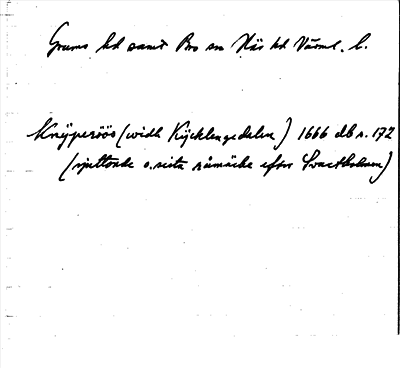 Grums hd samt Bro sn Näs hd Värml. l.
Knÿperöös (widh Kÿcklingedalen) 1666 db s. 172
(sjuttonde o. sista råmärke efter Svartholmen)